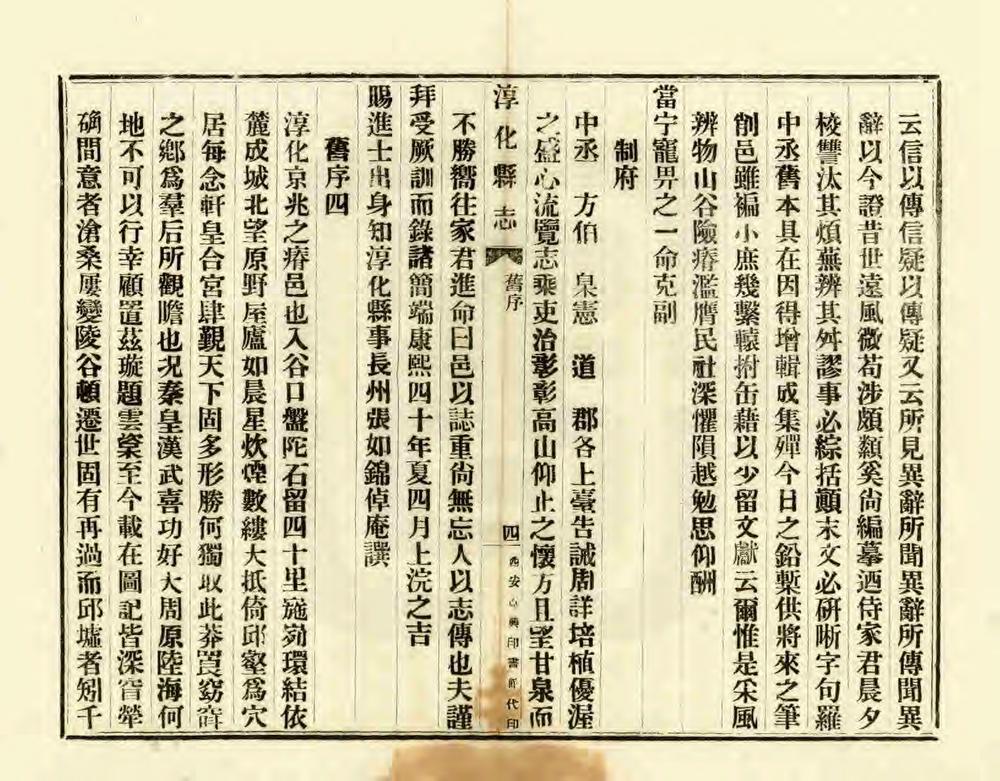 云信以傳信疑以傳疑又云所見異辭所聞異辭所傳聞異
辭以今證昔世遠風微苟涉頗纇奚尙編摹迺侍家君晨夕
校讐汰其煩蕪辨其舛謬事必綜括顚末文必硏晰字句羅
中丞舊本具在因得增輯成集殫今日之鉛槧供將來之筆
削邑雖褊小庶幾繫轅拊缶藉以少留文獻云爾惟是采風
辨物山谷險瘠濫膺民社深懼隕越勉思仰酬
當宁寵畀之一命克副
制府
中丞 方伯 臬憲 道 郡各上臺告誡周詳培植優渥
之盛心流覽志乘吏治彰彰高山仰止之懷方且望甘泉而
淳化縣志 舊序 四 西安 興印書 代印
不勝嚮往家君進命曰邑以誌重尙無忘人以志傳也夫謹
拜受厥訓而錄諸簡端康熙四十年夏四月上浣之吉
賜進士出身知淳化縣事長州張如錦倬庵譔
舊序四
淳化京兆之瘠邑也入谷口盤陀石留四十里迤𨓦環結依
麓成城北望原野屋廬如晨星炊煙數縷大抵倚邱壑爲穴
居每念軒皇合宮肆覲天下固多形勝何獨取此莽罠窈窅
之鄕爲羣后所觀瞻也况秦皇漢武喜功好大周原陸海何
地不可以行幸顧置茲璇題雲棨至今載在圖記皆深窅犖
确間意者滄桑屢變陵谷頓遷世固有再過而邱墟者矧千